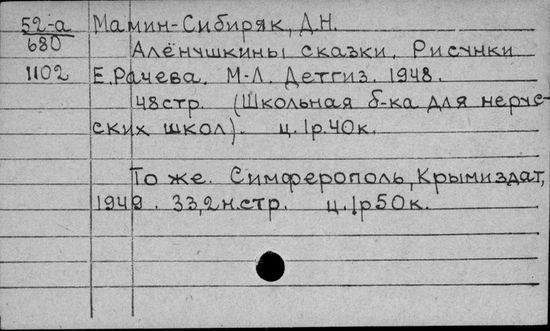 52-а Мамин-Сибиряк, Д.Н.
680 Алёнушкины сказки. Рисунки
1102 Е.Рачева. М-Л. Детгиз. 1948.
48стр. (Школьная б-ка для нерус-
ских школ). ц.1р.40к.
То же. Симферополь, Крымиздат,
1949. 33,2н.стр. ц.1р50к.